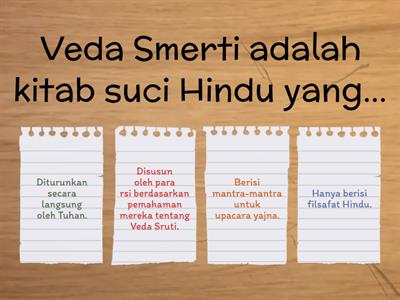 Veda Smerti adalah
kitab suci Hindu yang...
Diturunkan
secara
langsung
oleh Tuhan.
Disusun
oleh para
rsi berdasarkan
pemahaman
mereka tentang
Veda Sruti.
Berisi
mantra-mantra
untuk
upacara yajna.
Hanya berisi
filsafat Hindu.